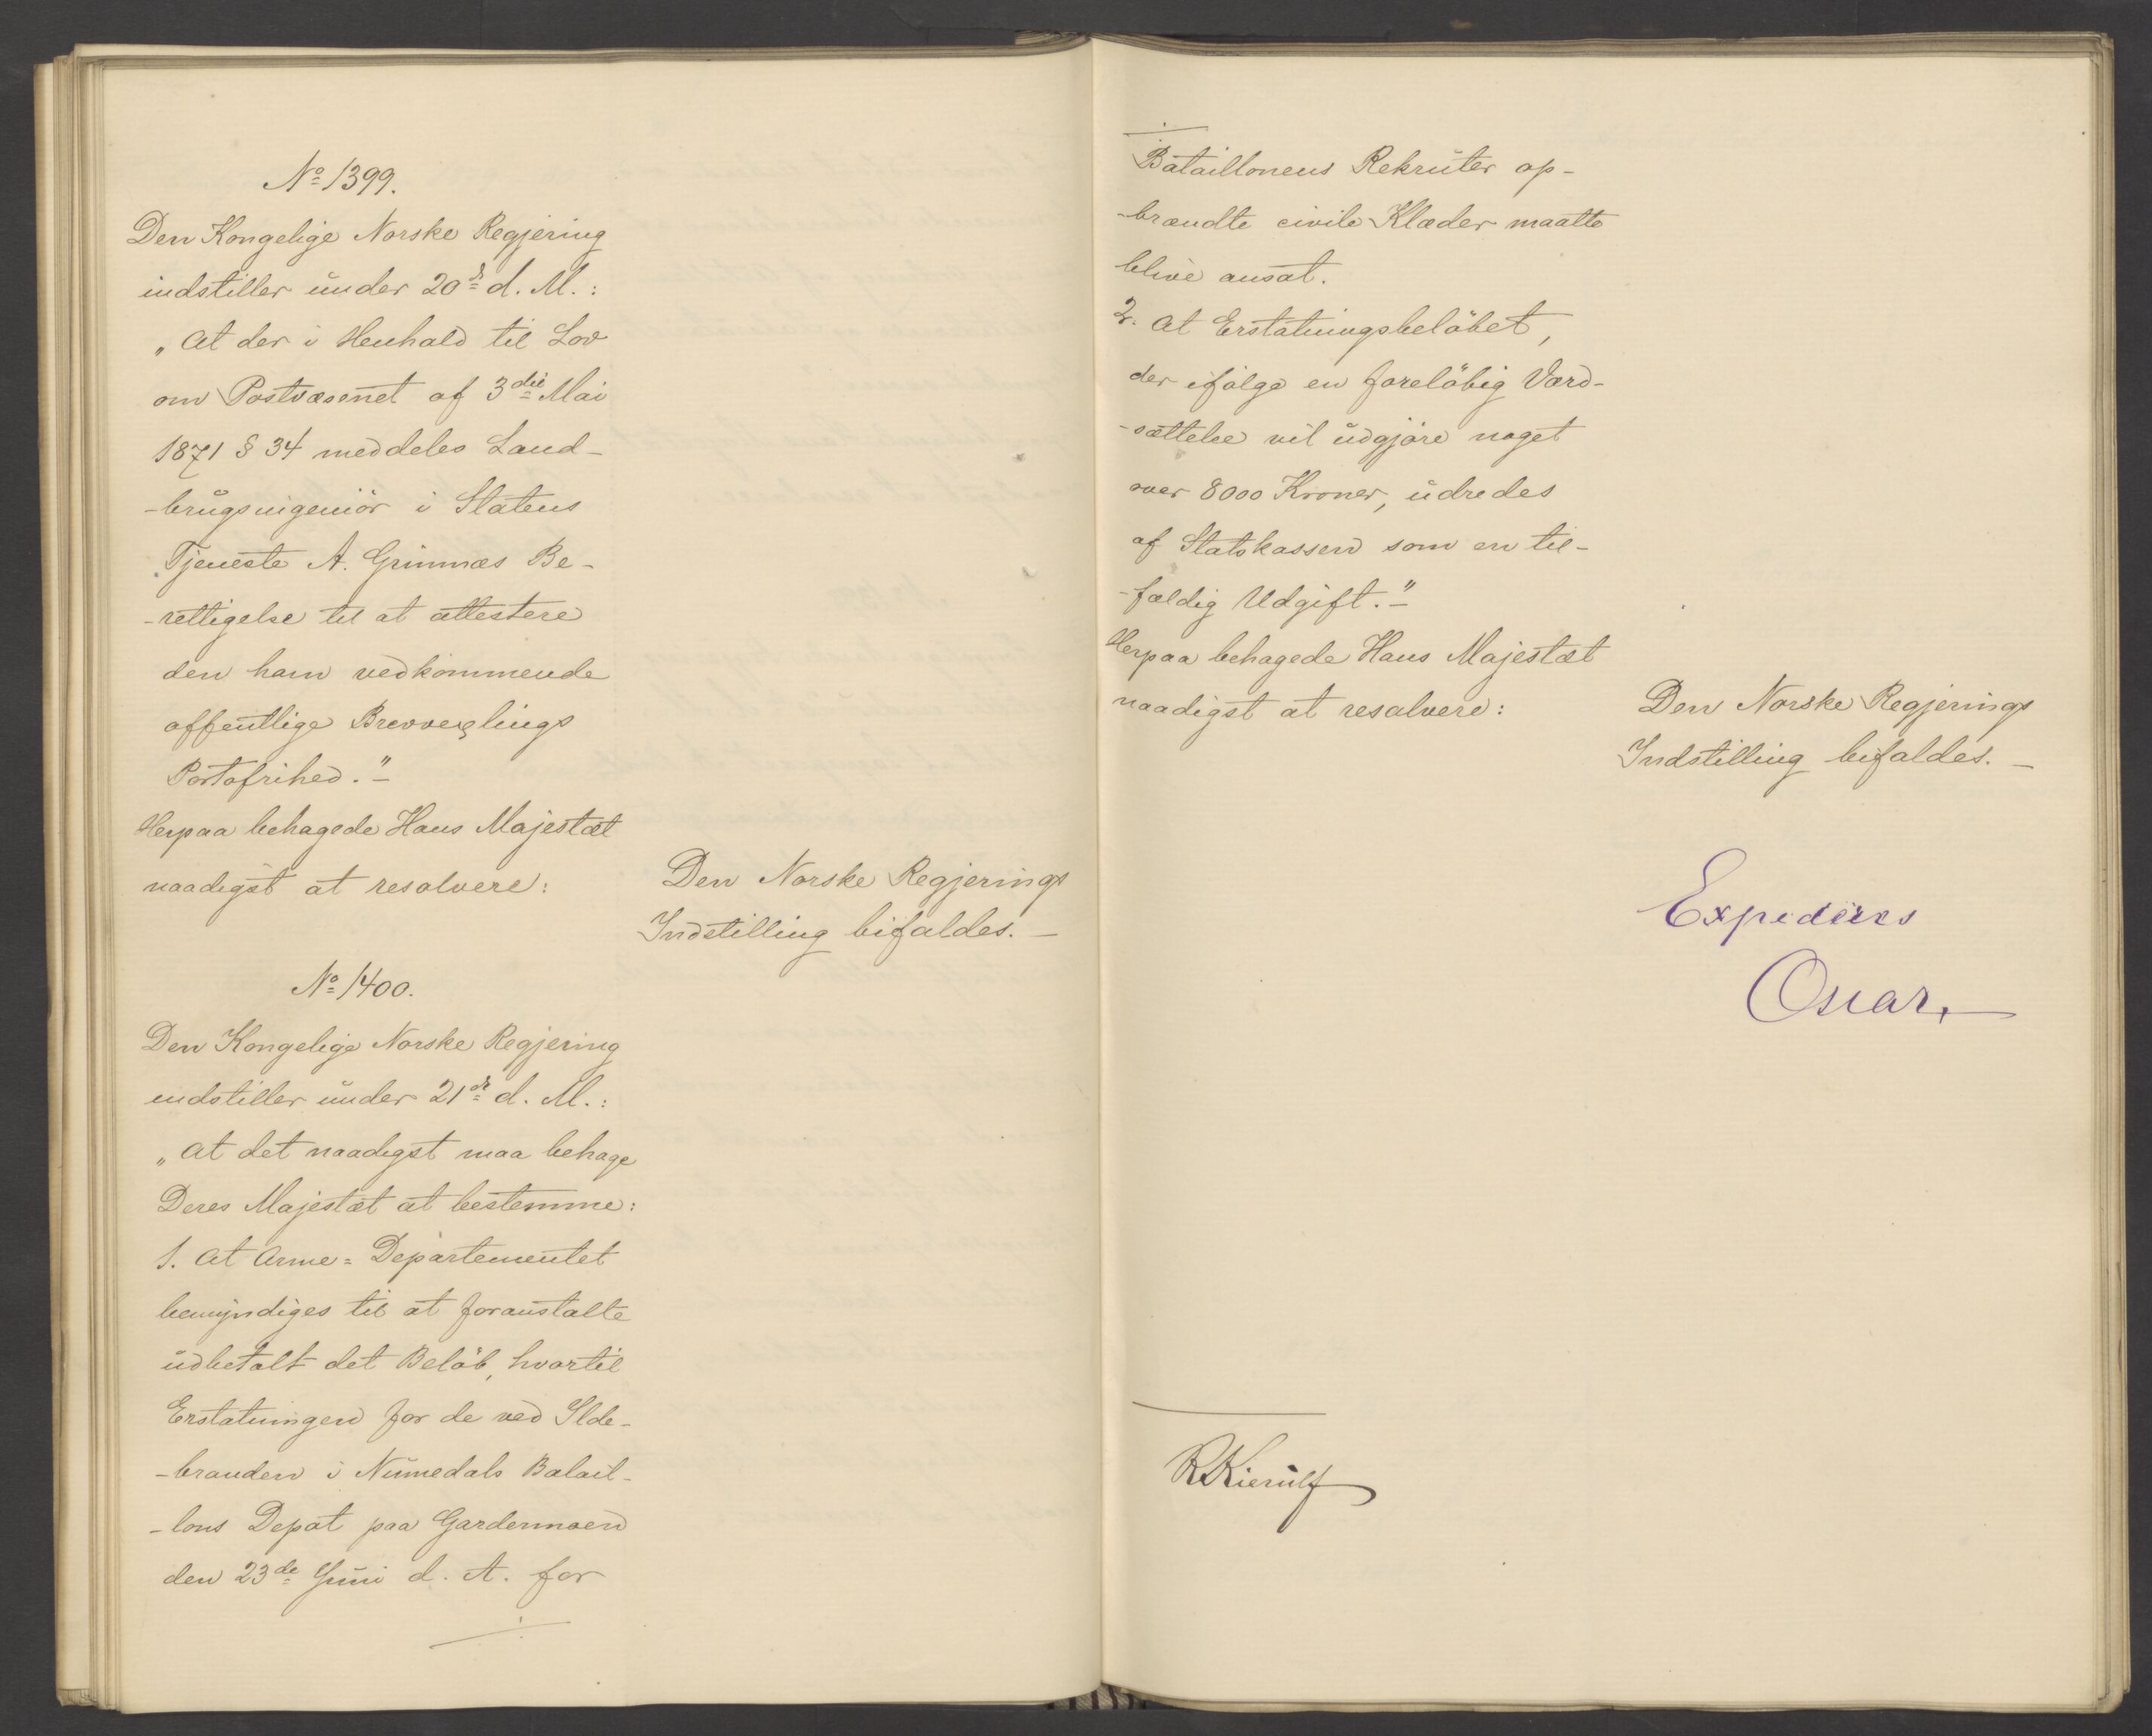 No 1399.
Den Kongelige Norske Regjering
indstiller under 20de d. M.:
„At der i Henhold til Lov
om Postvæsenet af 3die Mai
1871 § 34 meddeles Land-
-brugsingeniör i Statens
Tjeneste A. Grimnæs Be-
-rettigelse til at attestere
den ham vedkommende
offentlige Brevvexlings
Portofrihed."-
Herpaa behagede Hans Majestæt
naadigst at resolvere:
Den Norske Regjerings
Indstilling bifaldes. -
No 1400.
Den Kongelige Norske Regjering
indstiller under 21de d. M.:
„at det naadigst maa behage
Deres Majestæt at bestemme:
1. At Arme-Departementet
bemyndiges til at foranstalte
udbetalt det Belöb, hvortil
Erstatningen for de ved Ilde-
-branden i Numedals Batail-
-lons Depot paa Gardermoen
den 23de Juni d. A. for
./.
./.
Bataillonens Rekruter op-
-brændte civile Klæder maatte
blive ansat.
2. At Erstatningsbelöbet,
der ifölge en foreløbig Værd-
-sættelse vil udgjöre noget
over 8000 Kroner, udredes
af Statskassen som en til-
-fældig Udgift."-
Herpaa behagede Hans Majestæt
naadigst at resolvere:
Den Norske Regjerings
Indstilling bifaldes. -
Expederes
Oscar.
RKierulf